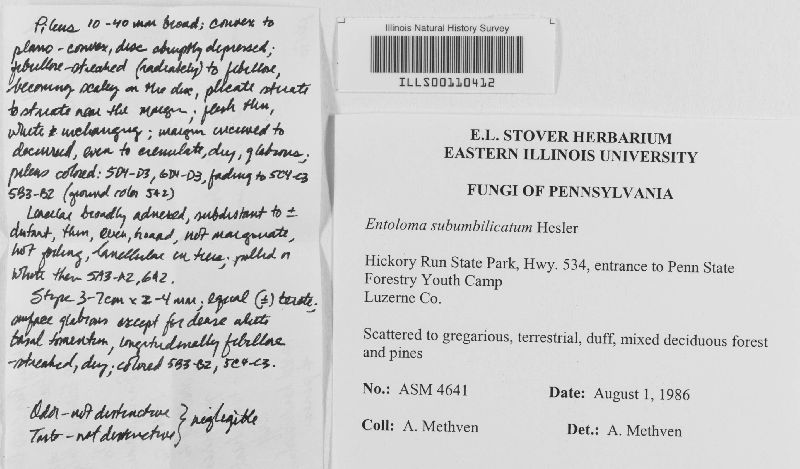 Pileus 10-40 mm broad; convex to
plano-convex, disc abruptly depressed;
fibrillose-streaked (radiately) to fibrillose,
becoming scaley on the disc, plicate striate
to striate near the margin; flesh thin,
white & unchanging; margin incurved to
decurved, even to crenulate, dry, glabrous;
pileus colored: 5D4-D3, 6D4-D3, fading to 5C4-C3
5B3-B2 (ground color 5A2)
Lamellae broadly adnexed, subdistant to ±
distant, thin, even, broad, not marginate,
not forking, lamellulae in tiers; pallid or
white then 5A3-A2, 6A2.
Stipe 3-7cm x 2-4 mm, equal (±) terete,
surface glabrous except for dense white
basal tomentum, longitudinally fibrillose
-streaked, dry; colored 5B3-B2, 5C4-C3.
Odor-not distinctive } negligible
Taste-not distinctive
Illinois Natural History Survey
ILLS00110412
E.L. STOVER HERBARIUM
EASTERN ILLINOIS UNIVERSITY
FUNGI OF PENNSYLVANIA
Entoloma subumbilicatum Hesler
Hickory Run State Park, Hwy. 534, entrance to Penn State
Forestry Youth Camp
Luzerne Co.
Scattered to gregarious, terrestrial, duff, mixed deciduous forest
and pines
No.: ASM 4641 Date: August 1, 1986
Coll: A. Methven Det.: A. Methven